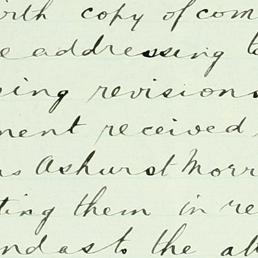 irth copy of com
e addressing to
ing revisions
ment received
s Ashurst Morr
ting them in re
nd as to the at